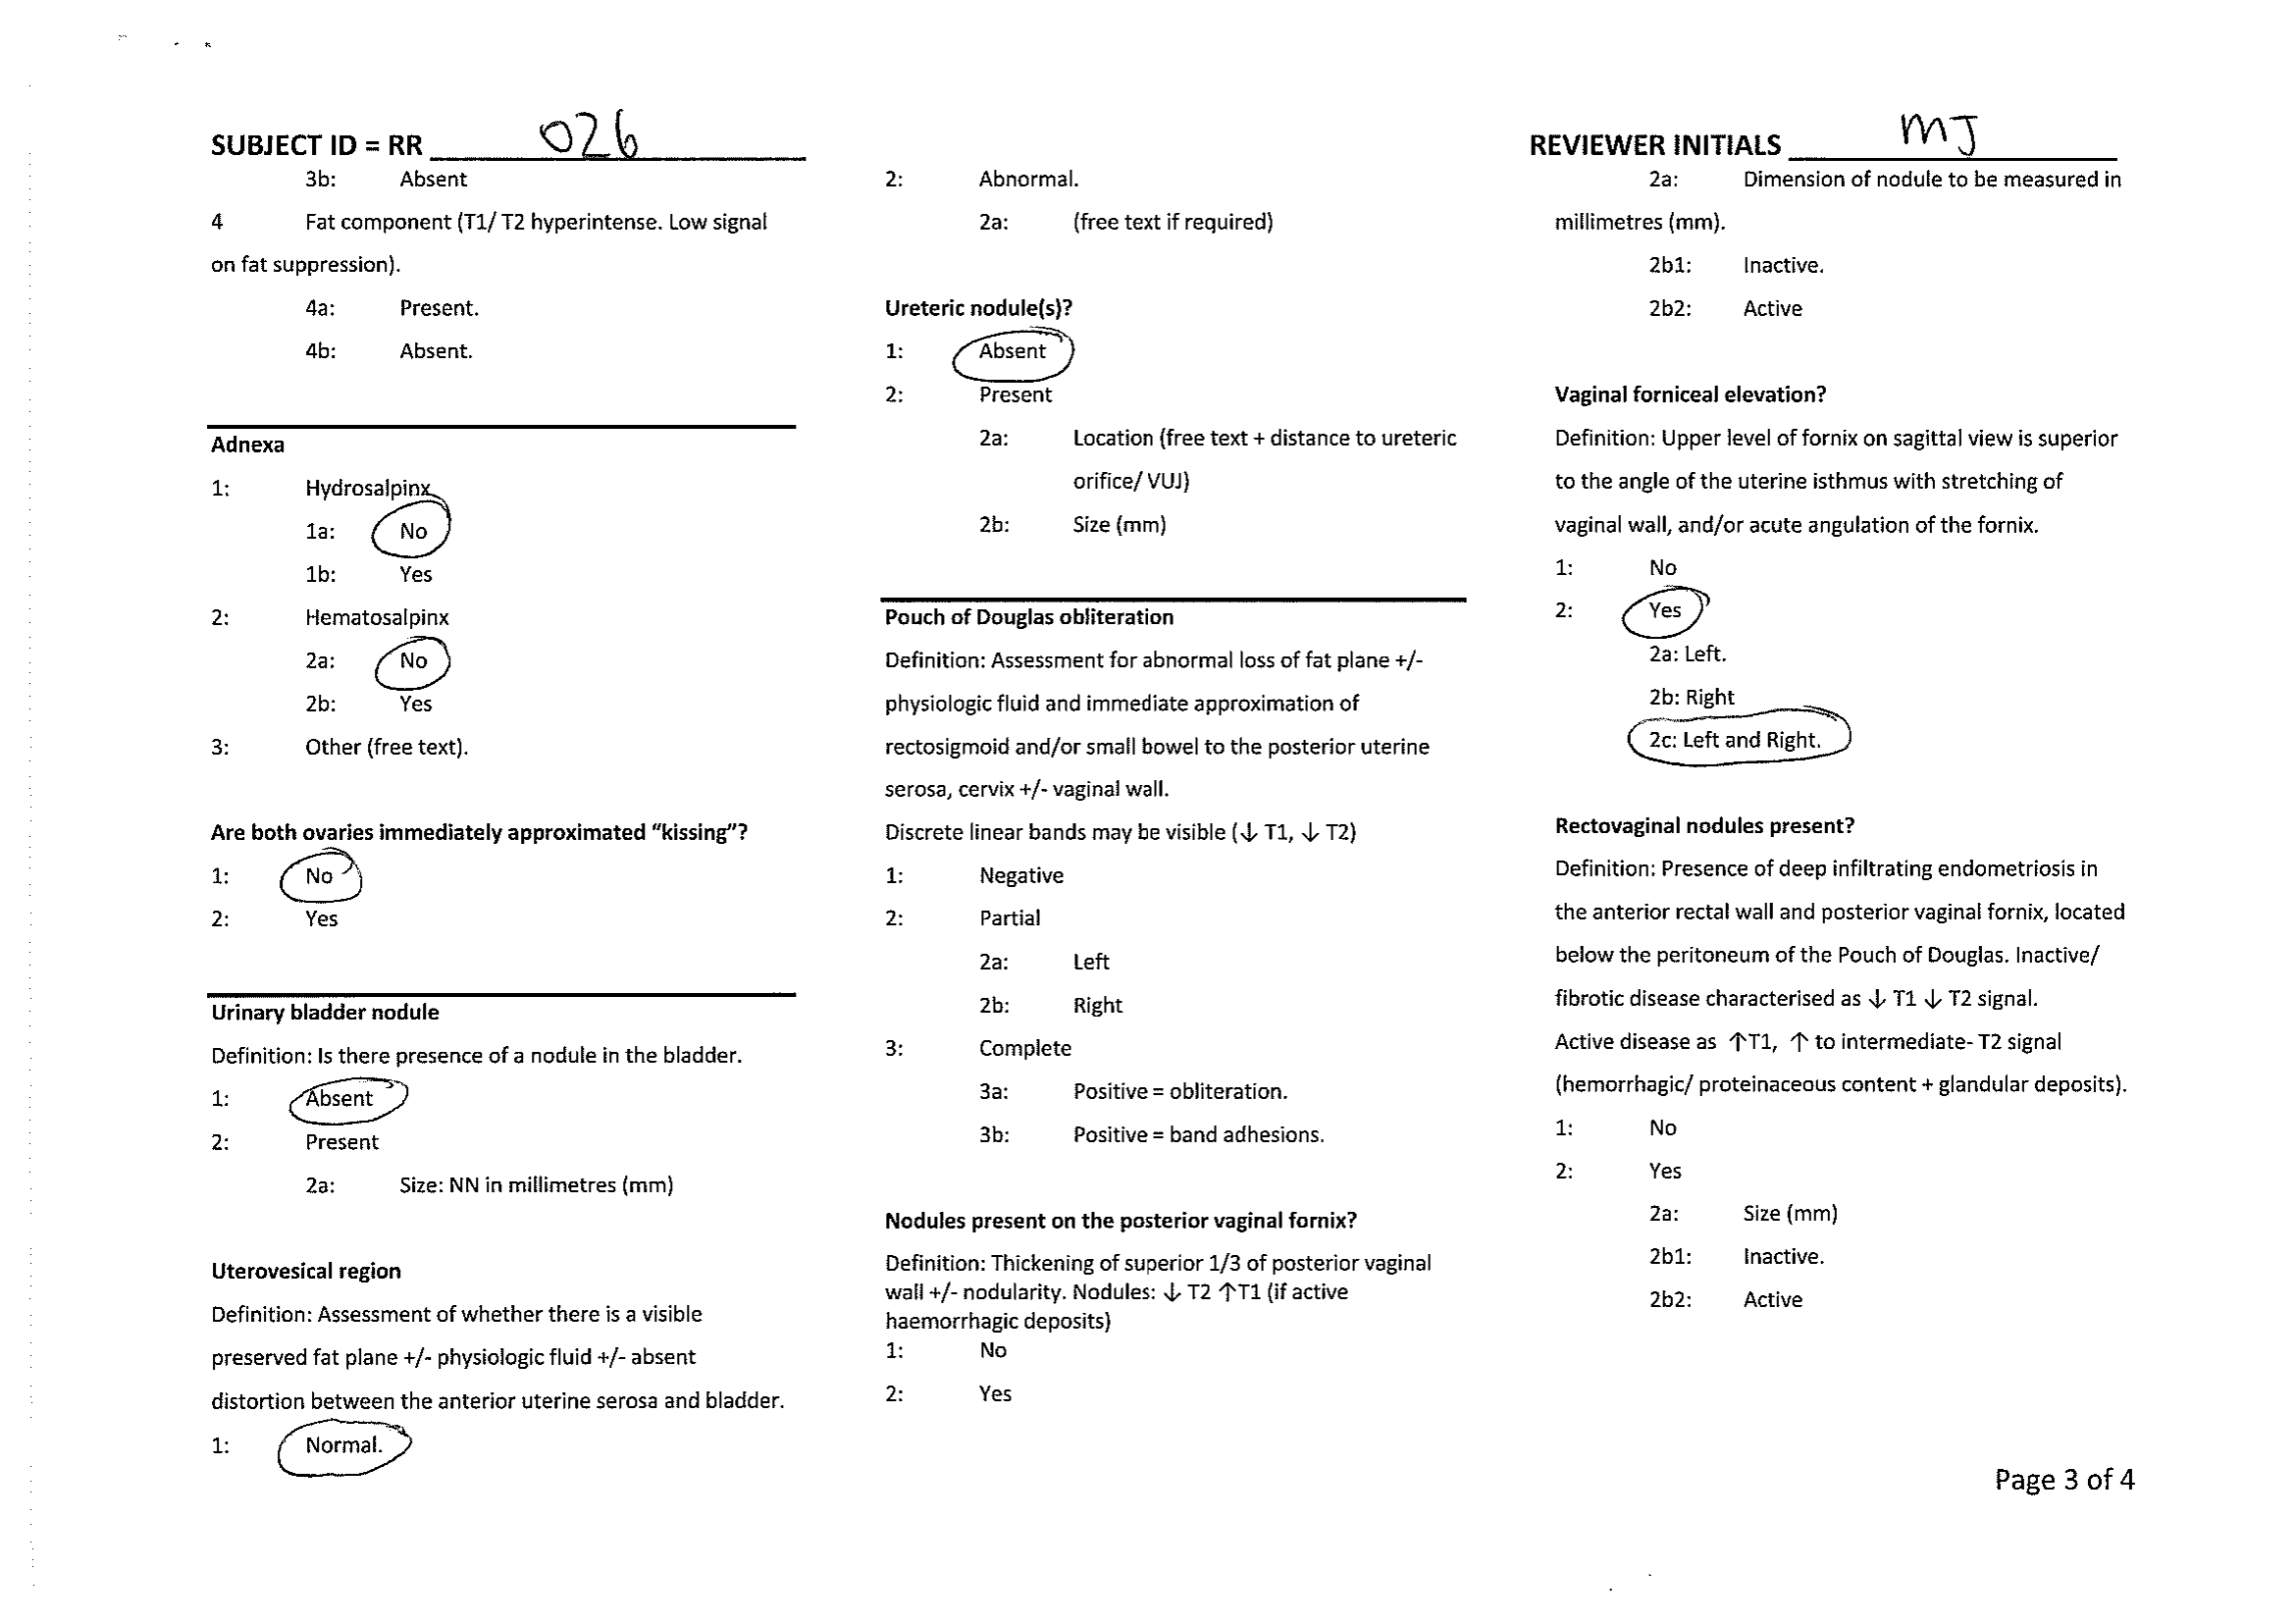 SUBJECT ID = RR 026
3b: Absent
4 Fat component (T1/ T2 hyperintense. Low signal
on fat suppression).
4a: Present.
4b: Absent.
Adnexa
1: Hydrosalpinx
1a: No
1b: Yes
2: Hematosalpinx
2a: No
2b: Yes
3: Other (free text).
Are both ovaries immediately approximated “kissing”?
1: No
2: Yes
Urinary bladder nodule
Definition: Is there presence of a nodule in the bladder.
1: Absent
2: Present
2a: Size: NN in millimetres (mm)
Uterovesical region
Definition: Assessment of whether there is a visible
preserved fat plane +/- physiologic fluid +/- absent
distortion between the anterior uterine serosa and bladder.
1: Normal.
2: Abnormal.
2a: (free text if required)
Ureteric nodule(s)?
1: Absent
2: Present
2a: Location (free text + distance to ureteric
orifice/ VUJ)
2b: Size (mm)
Pouch of Douglas obliteration
Definition: Assessment for abnormal loss of fat plane +/-
physiologic fluid and immediate approximation of
rectosigmoid and/or small bowel to the posterior uterine
serosa, cervix +/- vaginal wall.
Discrete linear bands may be visible (↓ T1, ↓ T2)
1: Negative
2: Partial
2a: Left
2b: Right
3: Complete
3a: Positive = obliteration.
3b: Positive = band adhesions.
Nodules present on the posterior vaginal fornix?
Definition: Thickening of superior 1/3 of posterior vaginal
wall +/- nodularity. Nodules: ↓ T2 ↑T1 (if active
haemorrhagic deposits)
1: No
2: Yes
REVIEWER INITIALS MJ
2a: Dimension of nodule to be measured in
millimetres (mm).
2b1: Inactive.
2b2: Active
Vaginal forniceal elevation?
Definition: Upper level of fornix on sagittal view is superior
to the angle of the uterine isthmus with stretching of
vaginal wall, and/or acute angulation of the fornix.
1: No
2: Yes
2a: Left.
2b: Right
2c: Left and Right.
Rectovaginal nodules present?
Definition: Presence of deep infiltrating endometriosis in
the anterior rectal wall and posterior vaginal fornix, located
below the peritoneum of the Pouch of Douglas. Inactive/
fibrotic disease characterised as ↓ T1 ↓ T2 signal.
Active disease as ↑T1, ↑ to intermediate- T2 signal
(hemorrhagic/ proteinaceous content + glandular deposits).
1: No
2: Yes
2a: Size (mm)
2b1: Inactive.
2b2: Active
Page 3 of 4